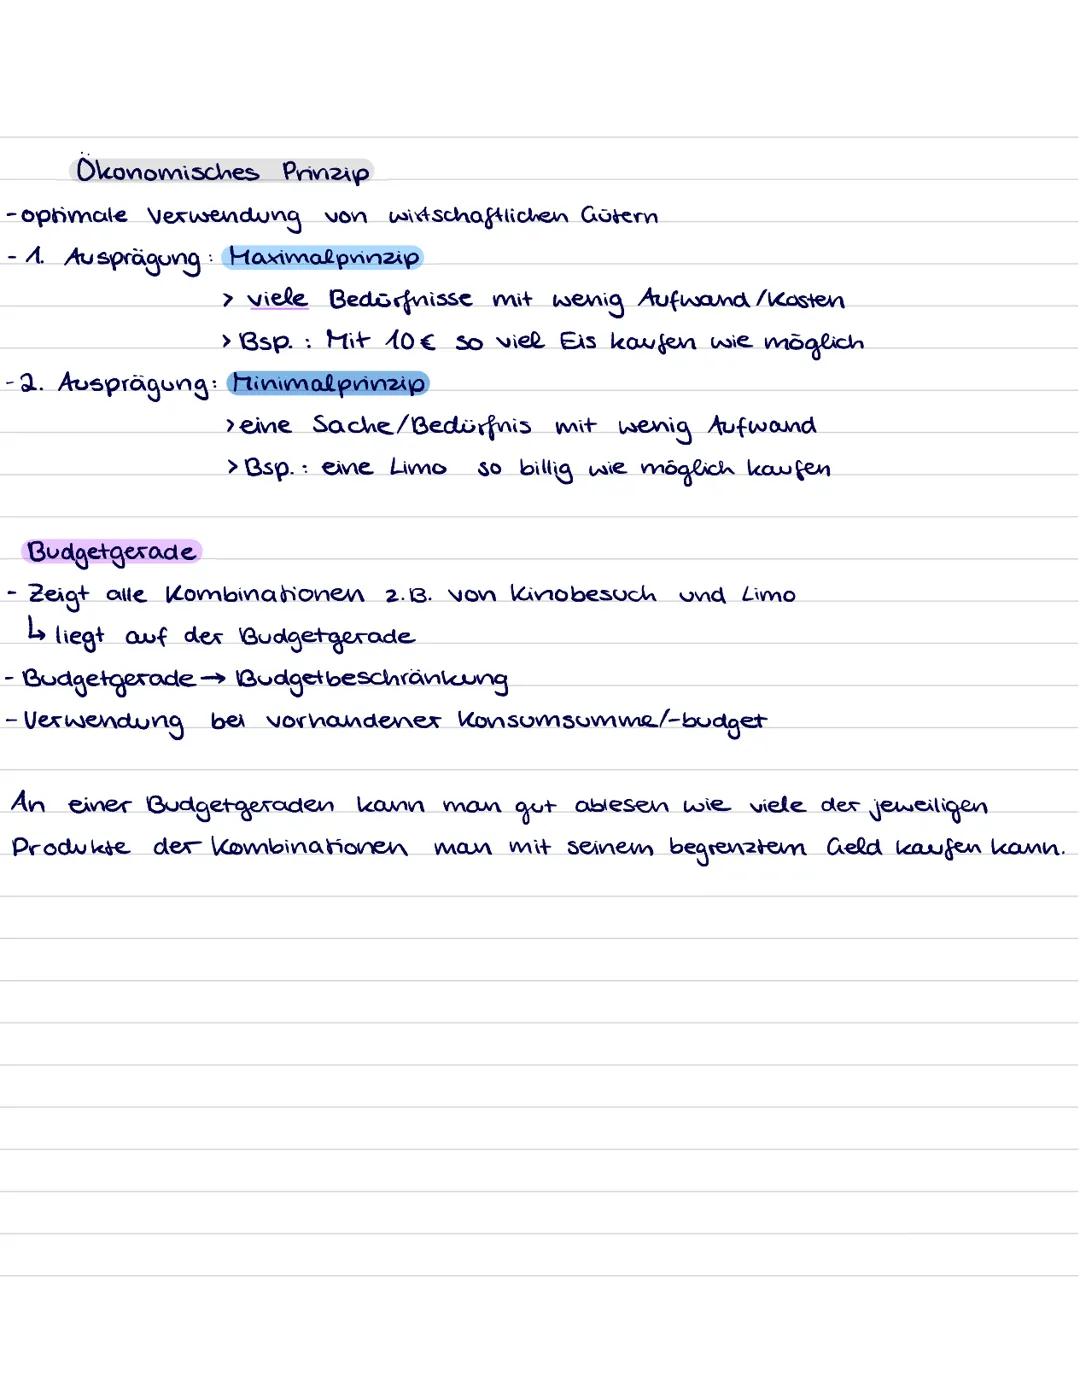 Ökonomisches Prinzip
- optimale Verwendung von wirtschaftlichen Gütern
- 1. Ausprägung: Maximalprinzip
> viele Bedürfnisse mit wenig Aufwand/Kosten
> Bsp.: Mit 10€ so viel Eis kaufen wie möglich
- 2. Ausprägung: Minimalprinzip
> eine Sache/Bedürfnis mit wenig Aufwand
> Bsp.: eine Limo so billig wie möglich kaufen
Budgetgerade
- Zeigt alle Kombinationen z.B. von Kinobesuch und Limo
↳ liegt auf der Budgetgerade
- Budgetgerade → Budgetbeschränkung
- Verwendung bei vorhandener Konsumsumme/-budget
An einer Budgetgeraden kann man gut ablesen wie viele der jeweiligen
Produkte der Kombinationen man mit seinem begrenztem Geld kaufen kann.